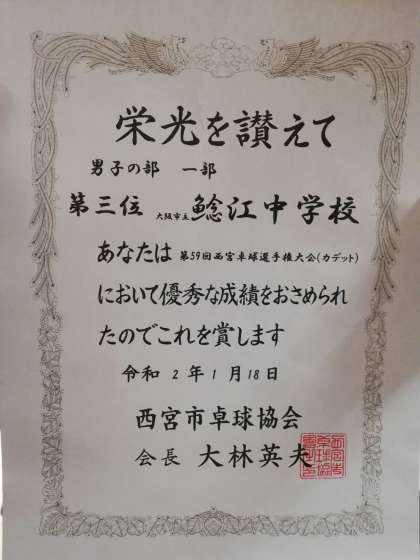 栄光を讃えて
男子の部 一部
第三位 大阪市立 鯰江中学校
あなたは 第59回西宮卓球選手権大会(カデット)
において優秀な成績をおさめられ
たのでこれを賞します
令和 2 年 1 月 18 日
西宮市卓球協会
会長 大林英夫